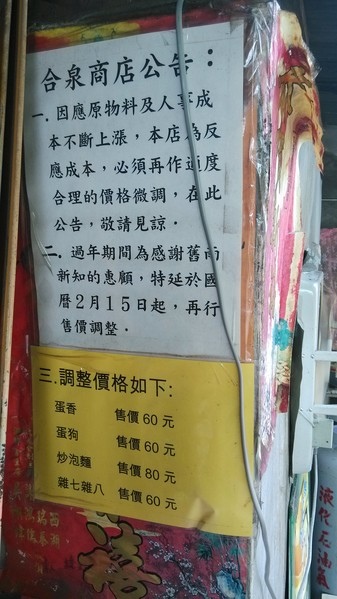 合泉商店公告：
一．因應原物料及人事成
本不斷上漲，本店為反
應成本，必須再作適度
合理的價格微調，在此
公告，敬請見諒．
二．過年期間為感謝舊雨
新知的惠顧，特延於國
曆２月１５日起，再行
售價調整．
三．調整價格如下：
蛋香 售價 60 元
蛋狗 售價 60 元
炒泡麵 售價 80 元
雜七雜八 售價 60 元
禧
液化石油氣